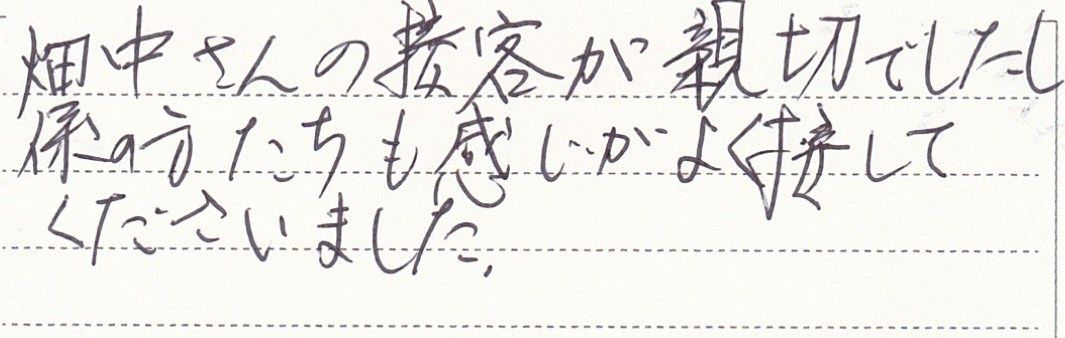 畑中さんの接客が親切でしたし
係の方たちも感じがよく接して
くださいました。